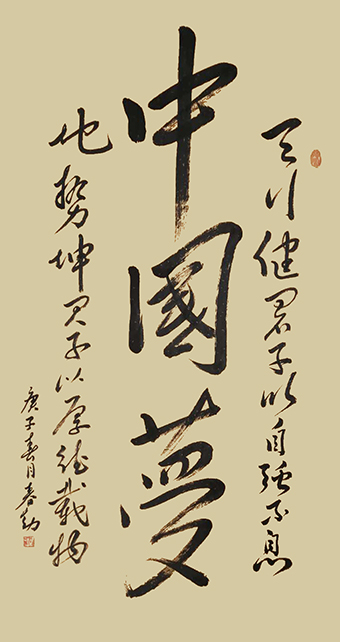 天行健君子以自强不息
中國夢
地势坤君子以厚德載物
庚子春月春